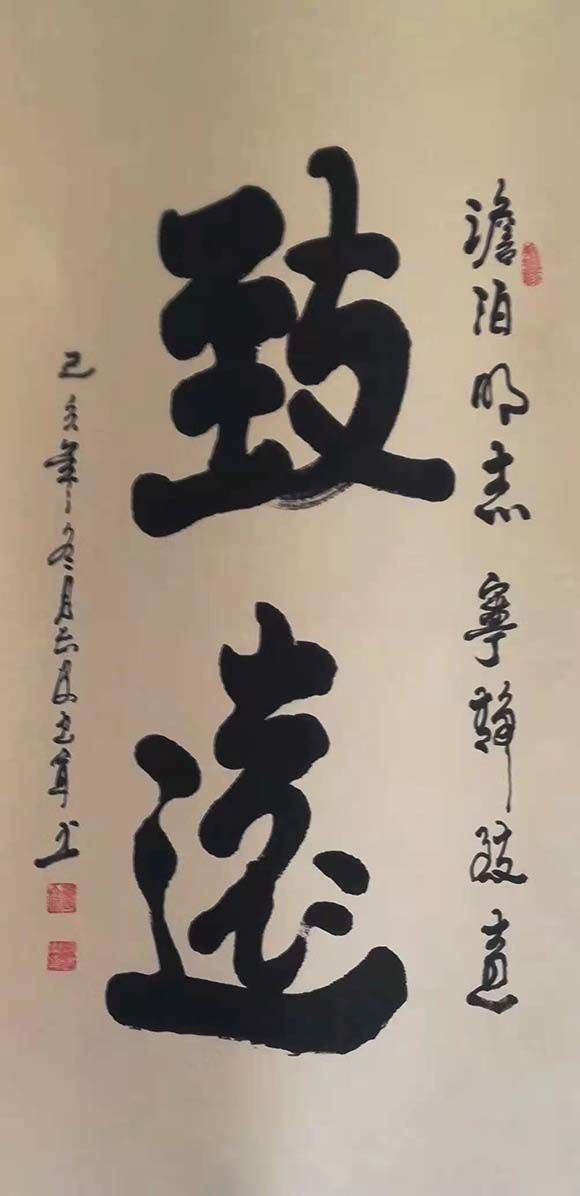 澹泊明志 寧静致遠
致遠
己亥年冬月